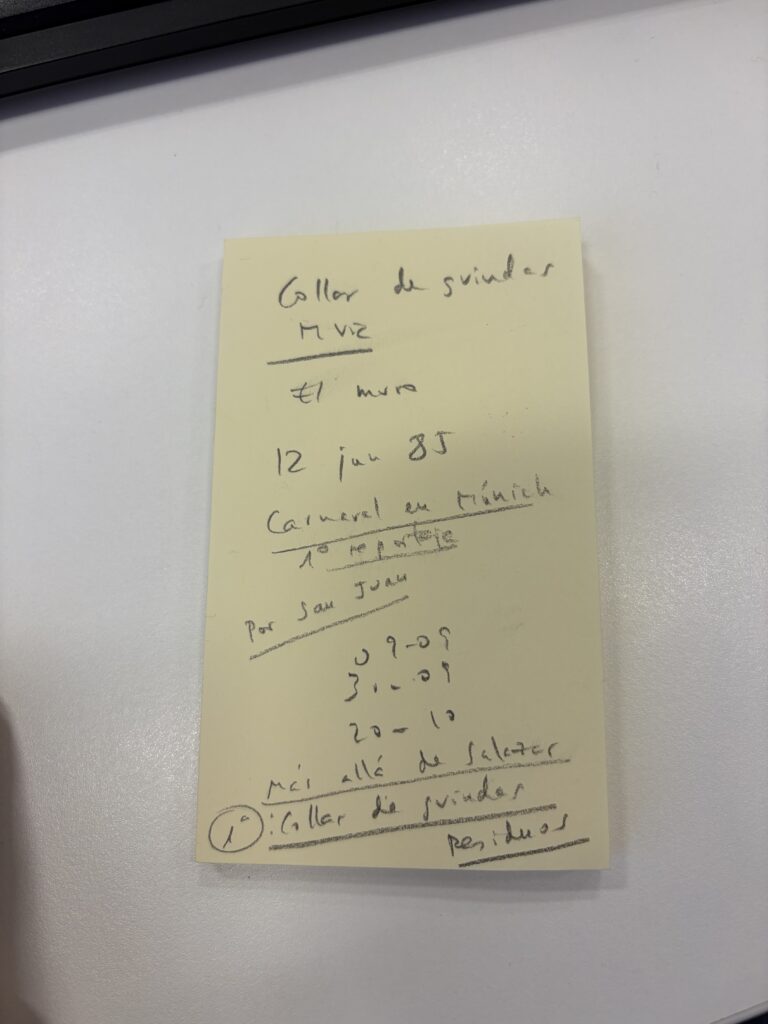 Collar de guindas
M VIZ
El muro
12 jun 85
Carnaval en Múnich
1º reportaje
Por San Juan
09-09
30-09
20-10
Más allá de Salazar
1º: Collar de guindas
Residuos